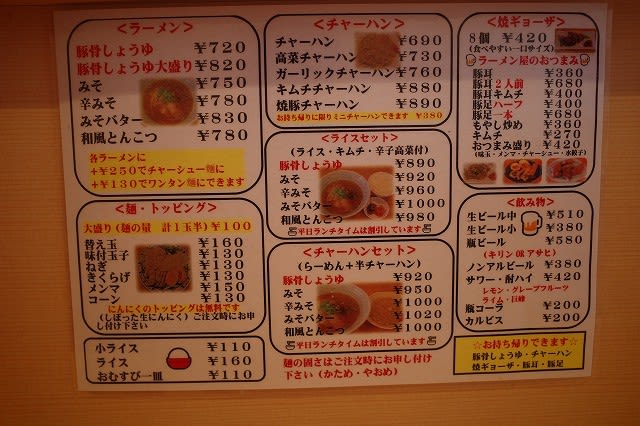 <ラーメン>
豚骨しょうゆ ¥720
豚骨しょうゆ大盛り ¥820
みそ ¥750
辛みそ ¥780
みそバター ¥830
和風とんこつ ¥780
各ラーメンに
+¥250でチャーシュー麺に
+¥130でワンタン麺にできます
<麺・トッピング>
大盛り(麺の量 計1玉半)¥100
替え玉 ¥160
味付玉子 ¥130
ねぎ ¥130
きくらげ ¥130
メンマ ¥150
コーン ¥130
にんにくのトッピングは無料です
(しぼった生にんにく)ご注文時にお申
し付け下さい
小ライス ¥110
ライス ¥160
おむすび一皿 ¥110
<チャーハン>
チャーハン ¥690
高菜チャーハン ¥730
ガーリックチャーハン ¥760
キムチチャーハン ¥880
焼豚チャーハン ¥890
お持ち帰りに限りミニチャーハンできます ¥380
<ライスセット>
(ライス・キムチ・辛子高菜付)
豚骨しょうゆ ¥890
みそ ¥920
辛みそ ¥960
みそバター ¥1000
和風とんこつ ¥980
平日ランチタイムは割引しています
<チャーハンセット>
(らーめん+半チャーハン)
豚骨しょうゆ ¥920
みそ ¥950
辛みそ ¥1000
みそバター ¥1020
和風とんこつ ¥1000
平日ランチタイムは割引しています
麺の固さはご注文時にお申し付け
下さい(かため・やおめ)
<焼ギョーザ>
8個 ¥420
(食べやすい一口サイズ)
ラーメン屋のおつまみ
豚耳 ¥360
豚耳2人前 ¥680
豚耳キムチ ¥400
豚足ハーフ ¥400
豚足一本 ¥680
もやし炒め ¥360
キムチ ¥270
おつまみ盛り ¥420
(味玉・メンマ・チャーシュー・水餃子)
<飲み物>
生ビール中 ¥510
生ビール小 ¥380
瓶ビール ¥580
(キリン 又は アサヒ)
ノンアルビール ¥380
サワー・酎ハイ ¥420
レモン・グレープフルーツ
ライム・巨峰
瓶コーラ ¥200
カルピス ¥200
☆お持ち帰りできます☆
豚骨しょうゆ・チャーハン
焼ギョーザ・豚耳・豚足